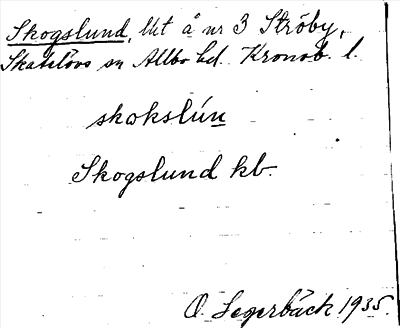 Skogslund, lht å nr 3 Ströby,
Skatelövs sn Allbo hd. Kronob. l.
skokslún
Skogslund kb.
O. Segerbäck 1935.